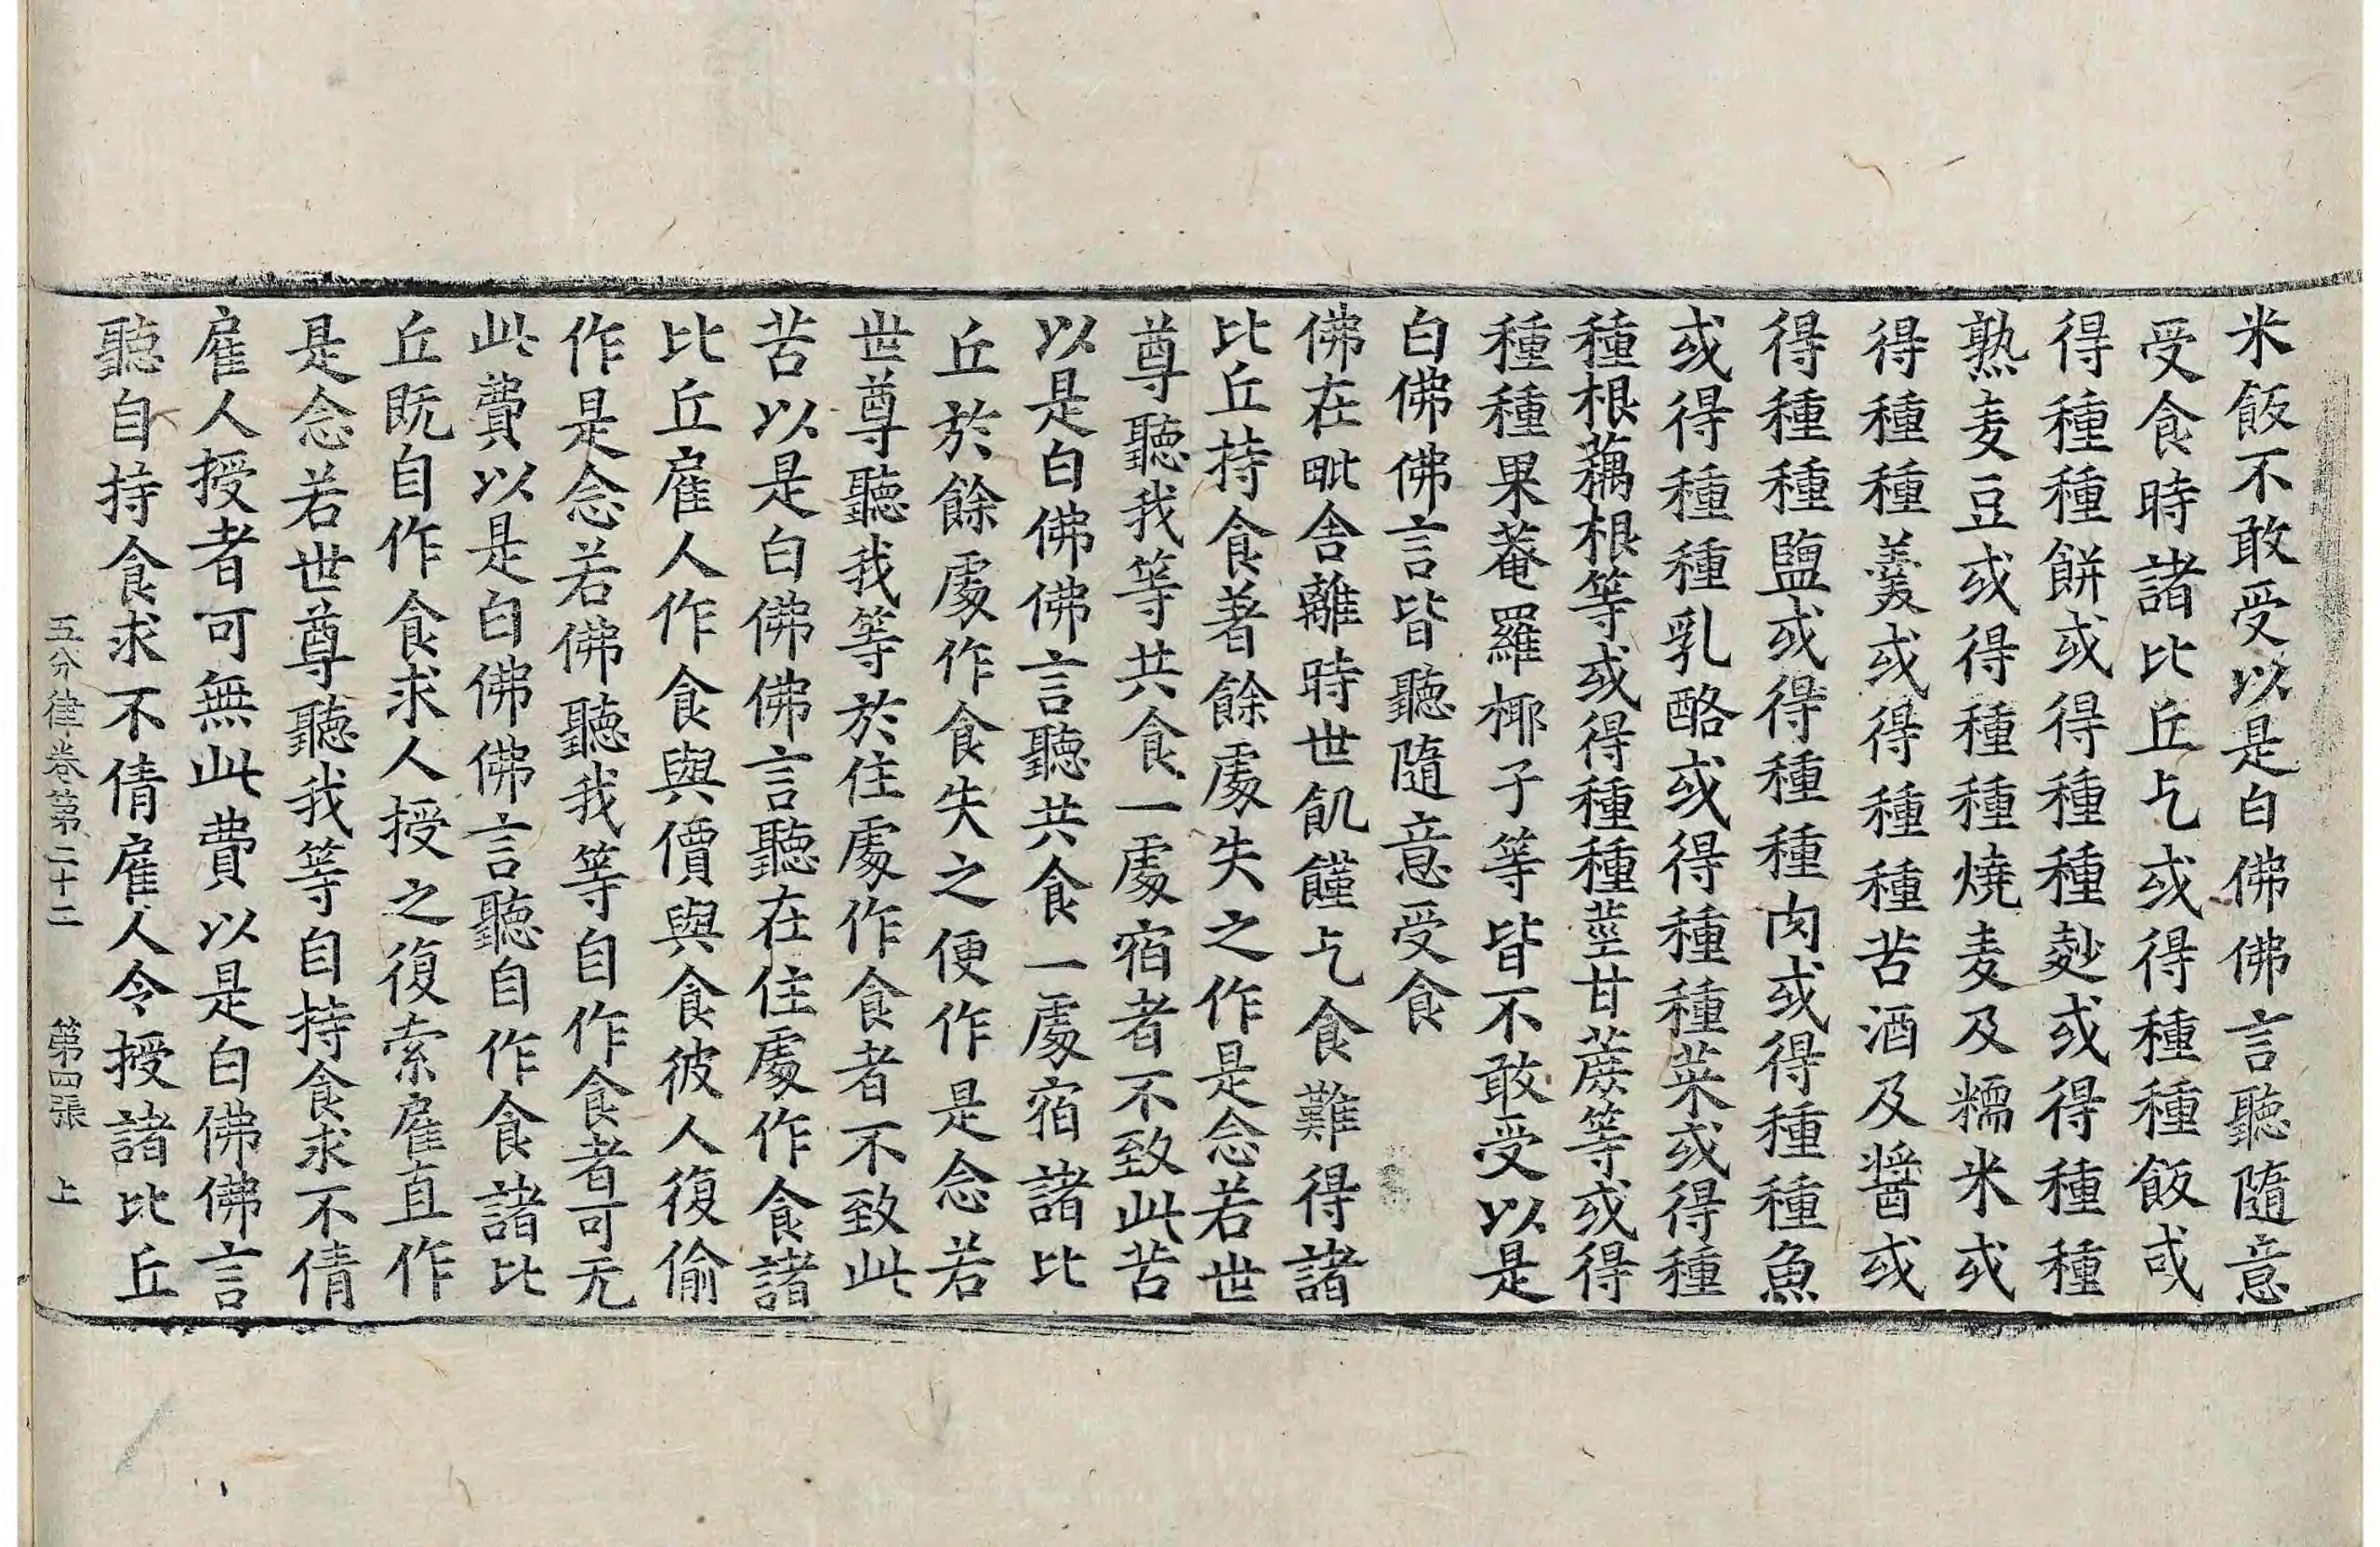 米飯不敢受以是白佛佛言聽隨意
受食時諸比丘乞或得種種飯或
得種種餅或得種種麨或得種種
熟麦豆或得種種燒麦及糯米或
得種種羹或得種種苦酒及醬或
得種種鹽或得種種肉或得種種魚
或得種種乳酪或得種種菜或得種
種根藕根等或得種種莖甘蔗等或得
種種果菴羅椰子等皆不敢受以是
白佛佛言皆聽隨意受食
佛在毗舍離時世飢饉乞食難得諸
比丘持食著餘處失之作是念若世
尊聽我等共食一處宿者不致此苦
以是白佛佛言聽共食一處宿諸比
丘於餘處作食失之便作是念若
世尊聽我等於住處作食者不致此
苦以是白佛佛言聽在住處作食諸
比丘雇人作食與價與食彼人復偷
作是念若佛聽我等自作食者可无
此費以是白佛佛言聽自作食諸比
丘既自作食求人授之復索雇直作
是念若世尊聽我等自持食求不倩
雇人授者可無此費以是白佛佛言
聽自持食求不倩雇人令授諸比丘
五分律卷第二十二 第四張 上